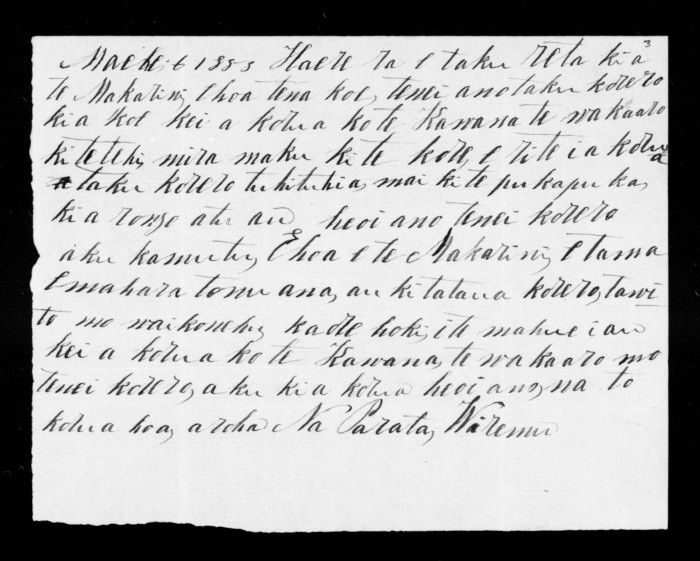 Maehe 6 1885 Haere ra e taku reta kia 3
te Makarini, E hoa tena koe, tenei ano taku korero
kia koe kei a korua ko te Kawana te wakaaro
ki tetehi, mira maku ki te kore, e rite i a korua
taku korero tuhituhia, mai ki te pukapuka,
kia rongo atu au heoi ano tenei korero
aku kamutu, E hoa e te Makarini, E tama
E mahara tonu ana, au ki tataua korero, tawi
to mo waikonehu, kaore hoki, i te mahue i au
kei a korua ko te Kawana, te wakaaro mo
tenei korero, aku kia korua heoi ano, na to
korua hoa, aroha Na Parata, Wiremu